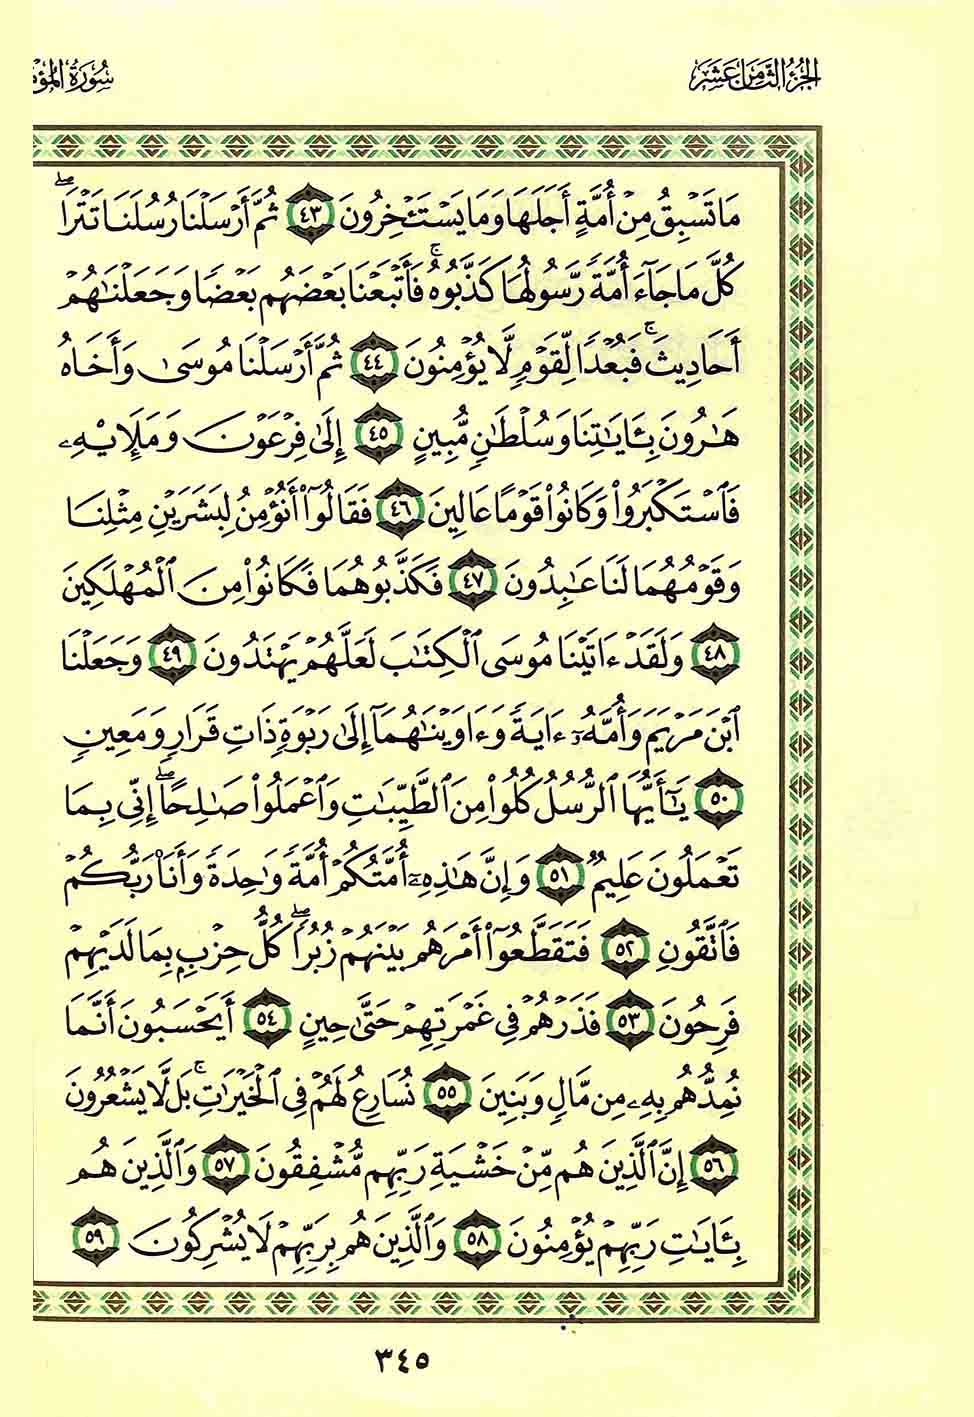 الجزء الثامن عشر
سورة المؤ
مَا تَسْبِقُ مِنْ أُمَّةٍ أَجَلَهَا وَمَا يَسْتَـْٔخِرُونَ ٤٣ ثُمَّ أَرْسَلْنَا رُسُلَنَا تَتْرَاۖ
كُلَّ مَا جَآءَ أُمَّةً رَّسُولُهَا كَذَّبُوهُۚ فَأَتْبَعْنَا بَعْضَهُم بَعْضًا وَجَعَلْنَٰهُمْ
أَحَادِيثَۚ فَبُعْدًا لِّقَوْمٍ لَّا يُؤْمِنُونَ ٤٤ ثُمَّ أَرْسَلْنَا مُوسَىٰ وَأَخَاهُ
هَٰرُونَ بِـَٔايَٰتِنَا وَسُلْطَٰنٍ مُّبِينٍ ٤٥ إِلَىٰ فِرْعَوْنَ وَمَلَإِي۟هِۦ
فَٱسْتَكْبَرُوا۟ وَكَانُوا۟ قَوْمًا عَالِينَ ٤٦ فَقَالُوٓا۟ أَنُؤْمِنُ لِبَشَرَيْنِ مِثْلِنَا
وَقَوْمُهُمَا لَنَا عَٰبِدُونَ ٤٧ فَكَذَّبُوهُمَا فَكَانُوا۟ مِنَ ٱلْمُهْلَكِينَ
٤٨ وَلَقَدْ ءَاتَيْنَا مُوسَى ٱلْكِتَٰبَ لَعَلَّهُمْ يَهْتَدُونَ ٤٩ وَجَعَلْنَا
ٱبْنَ مَرْيَمَ وَأُمَّهُۥٓ ءَايَةً وَءَاوَيْنَٰهُمَآ إِلَىٰ رَبْوَةٍ ذَاتِ قَرَارٍ وَمَعِينٍ
٥٠ يَٰٓأَيُّهَا ٱلرُّسُلُ كُلُوا۟ مِنَ ٱلطَّيِّبَٰتِ وَٱعْمَلُوا۟ صَٰلِحًاۖ إِنِّى بِمَا
تَعْمَلُونَ عَلِيمٌ ٥١ وَإِنَّ هَٰذِهِۦٓ أُمَّتُكُمْ أُمَّةً وَٰحِدَةً وَأَنَا۠ رَبُّكُمْ
فَٱتَّقُونِ ٥٢ فَتَقَطَّعُوٓا۟ أَمْرَهُم بَيْنَهُمْ زُبُرًاۖ كُلُّ حِزْبٍۭ بِمَا لَدَيْهِمْ
فَرِحُونَ ٥٣ فَذَرْهُمْ فِى غَمْرَتِهِمْ حَتَّىٰ حِينٍ ٥٤ أَيَحْسَبُونَ أَنَّمَا
نُمِدُّهُم بِهِۦ مِن مَّالٍ وَبَنِينَ ٥٥ نُسَارِعُ لَهُمْ فِى ٱلْخَيْرَٰتِۚ بَل لَّا يَشْعُرُونَ
٥٦ إِنَّ ٱلَّذِينَ هُم مِّنْ خَشْيَةِ رَبِّهِم مُّشْفِقُونَ ٥٧ وَٱلَّذِينَ هُم
بِـَٔايَٰتِ رَبِّهِمْ يُؤْمِنُونَ ٥٨ وَٱلَّذِينَ هُم بِرَبِّهِمْ لَا يُشْرِكُونَ ٥٩
٣٤٥